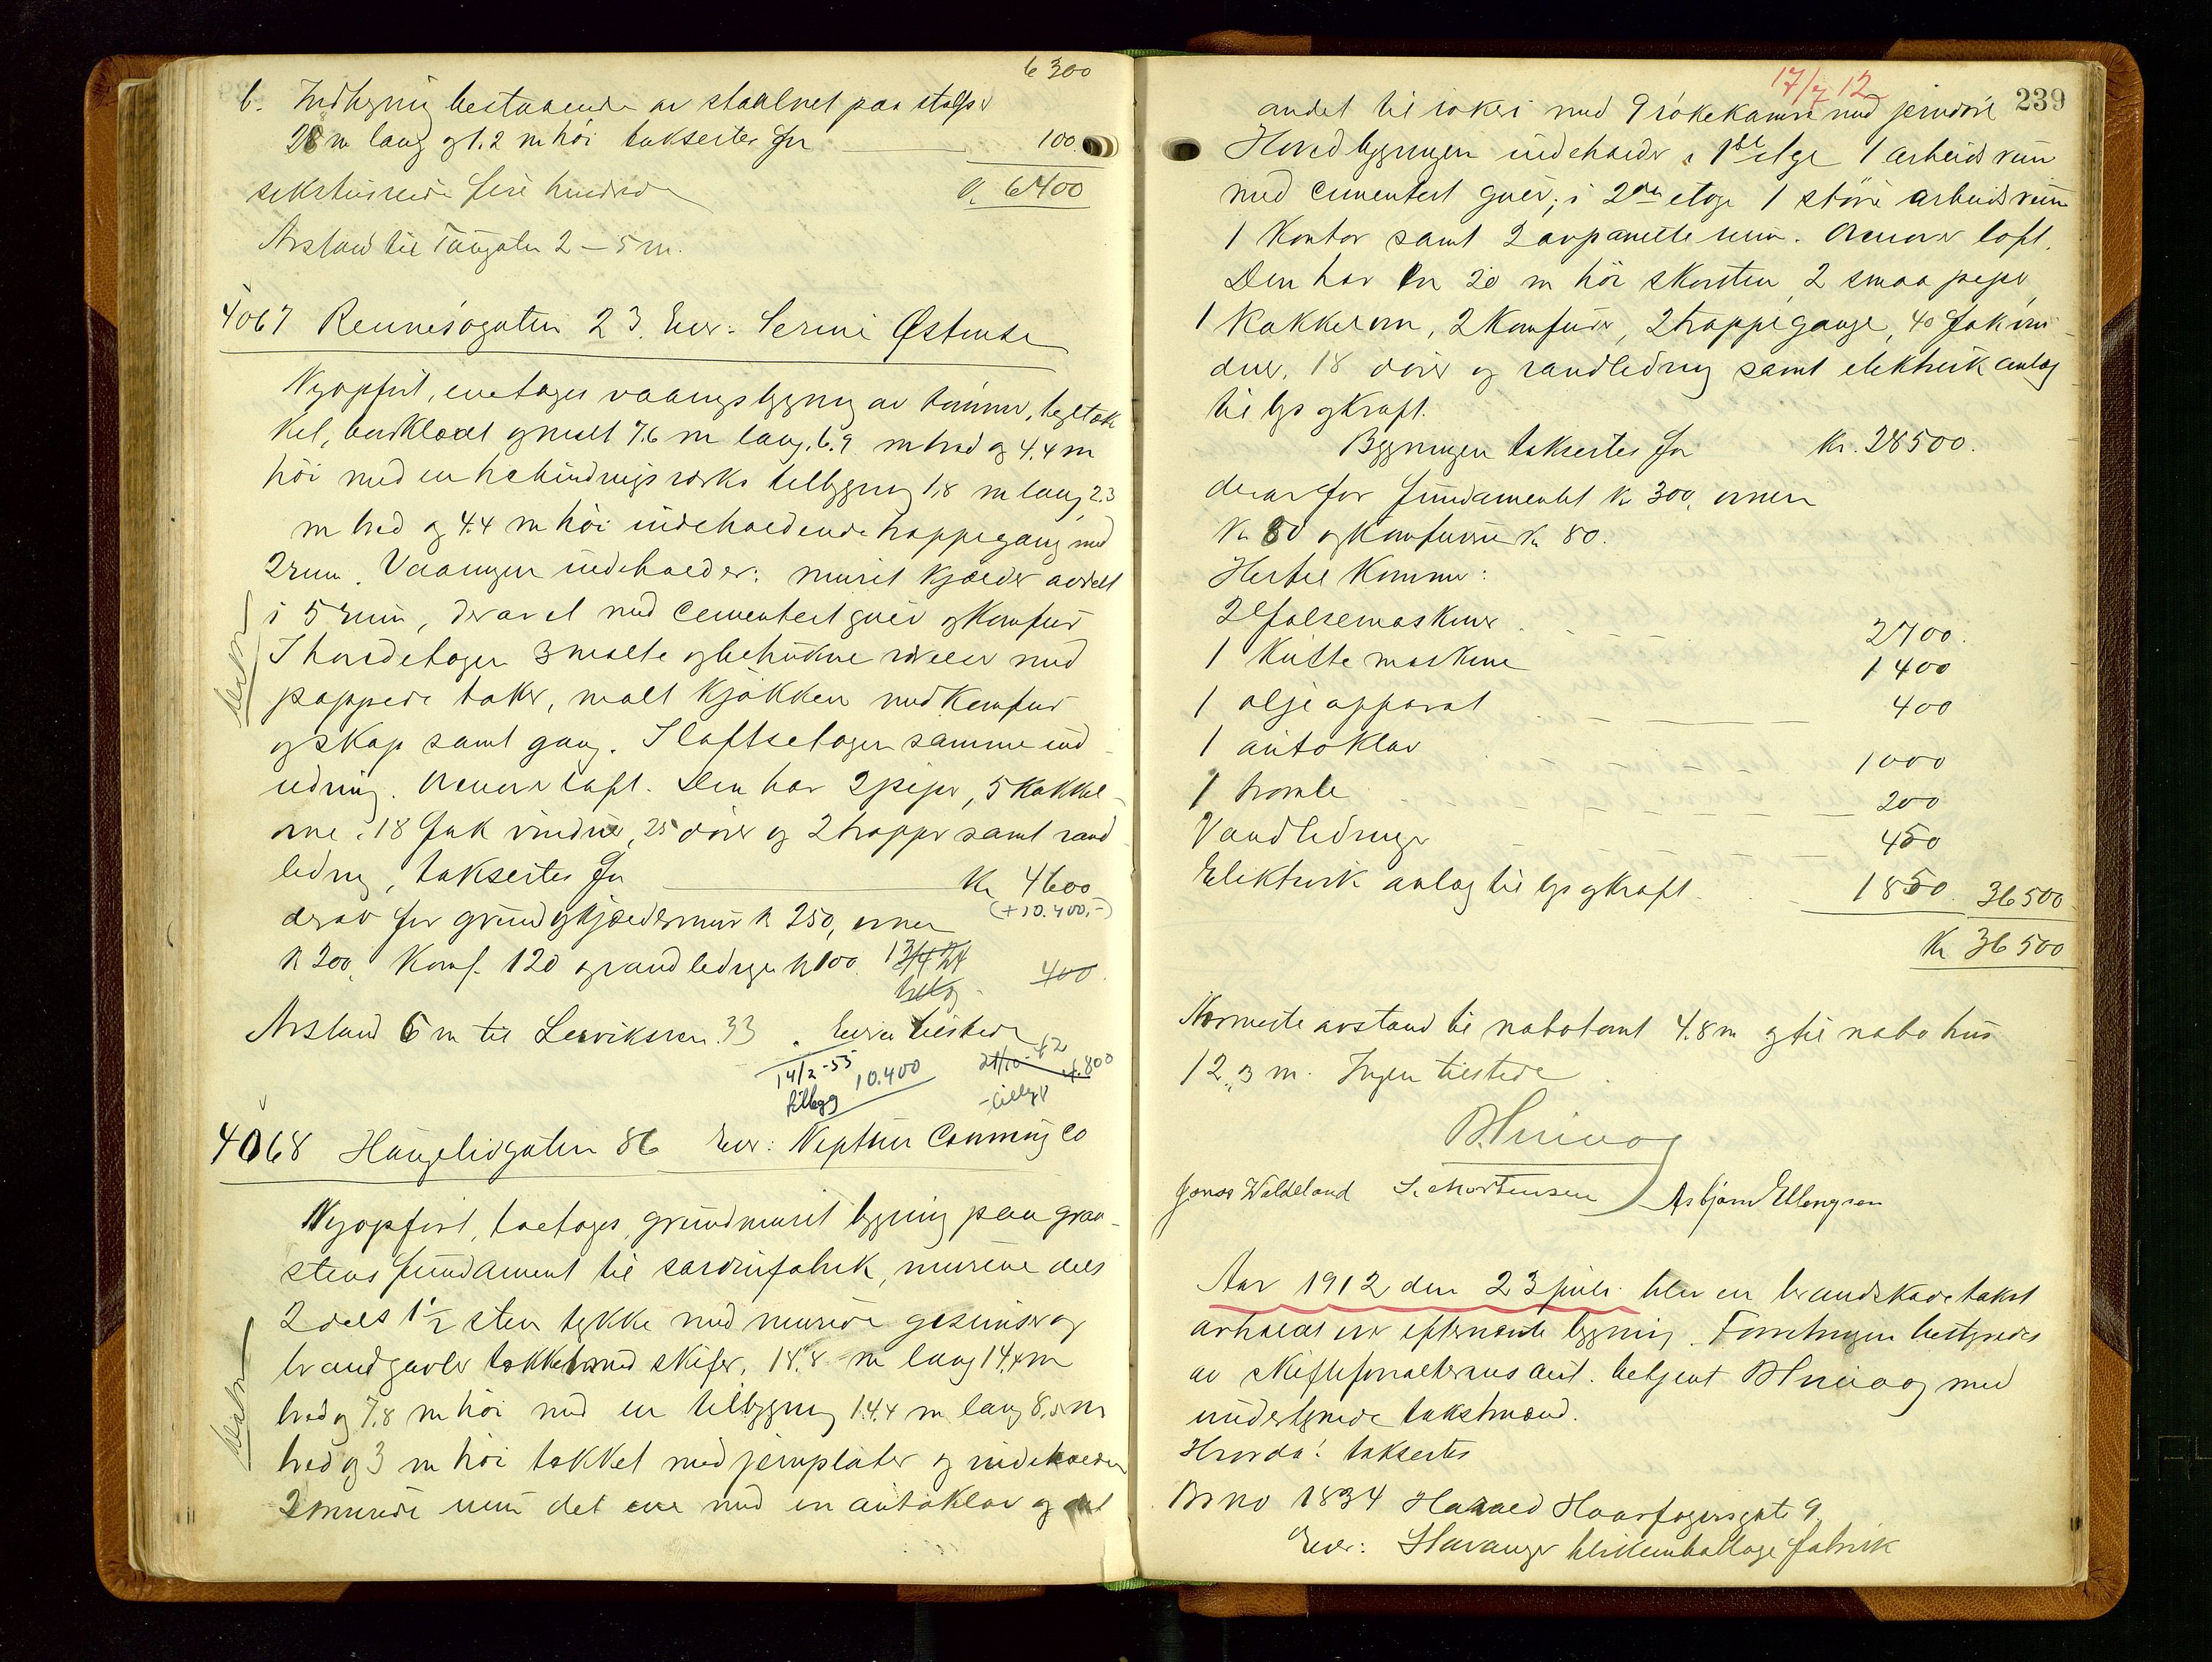 6300
b. Indhegning bestaaende av staalnet paa stolper
28 m lang og 1.2 m høi takseres for 100.
sekstusinde fire hundrede K. 6400
Avstand til Taugaten 2 – 5 m.
4067 Rennesøgaten 23. Eier: Serine Østensø
Nyopført, enetages vaaningsbygning av tømmer, tegltæk
ket, bordklædt og malt 7.6 m lang, 6.9 m bred og 4.4 m
høi med en halvbindingsverks tilbygning 1.8 m lang 2.3
m bred og 4.4 m høi indeholdende trappegang med
2 rum. Vaaningen indeholder: muret kjælder avdelt
i 5 rum, derav et med cementert gulv og komfur
I hovedetagen 3 malte og betrukne værelser med
pappede taker, malt kjøkken med komfur
og skap samt gang. I loftsetagen samme ind
redning. Ovenover loft. Den har 2 piper, 5 kakkel-
ovne, 18 fak vinduer, 25 dører og 2 trapper samt vand
ledning, takseres for Kr 4600
(+10.400,-)
derav for grund og kjældermur k 250, ovner
k 200, Komf. 120 og vandledning k 100. 13/4 24 400
Avstand 6 m til Lervikveien 33. Eieren tilstede
14/2-55 10.400
tillegg
21/10-42 4.800
tillegg
4068 Haugelidgaten 86 Eier: Neptun Canning Co
Nyopført, toetages, grundmuret bygning paa graa-
stens fundament til sardinfabrik, murene dels
2 dels 1½ sten tykke med murede gesimser og
brandgavler takket med skifer, 18.8 m lang 14.4 m
bred og 7.8 m høi med en tilbygning 14.4 m lang 8.5 m
bred og 3 m høi takket med jernplater og indeholder
2 murede rum det ene med en autoklav og det
17/7 12 239
andet til røkeri med 9 røkekamre med jerndøre
Hovedbygningen indeholder i 1ste etage 1 arbeidsrum
med cementert gulv; i 2den etage 1 større arbeidsrum
1 Kontor samt 2 avpanelte rum. Ovenover loft.
Den har en 20 m høi skorsten, 2 smaa piper,
1 Kakkelovn, 2 Komfurer, 2 trappegange, 40 fak vin
duer, 18 dører og vandledning samt elektrisk anlæg
til lys og kraft.
Bygningen takseres for Kr. 28500.
derav for fundamentet Kr 300, ovnen
Kr 80 og komfurene Kr 80.
Hertil kommer:
2 falsemaskiner 2700.
1 Kuttemaskine 1400
1 oljeapparat 400
1 autoklav 1000
1 tromle 200
Vandledninger 450
Elektrisk anlæg til lys og kraft 1850. 36500
Kr 36500
Nærmeste avstand til nabotomt 4.8 m og til nabohus
12.3 m. Ingen tilstede
Jonas Waldeland S. Mortensen Asbjørn Ellingsen
Aar 1912 den 23 juli blev en brandskadetakst
avholdt over efternævnte bygning. Forretningen bestyredes
av skifteforvalterens aut. betjent med
undertegnede takstmænd.
Hvorda: takseres
Br no 1834 Harald Haarfagersgate 9.
Eier: Stavanger blikemballage fabrik